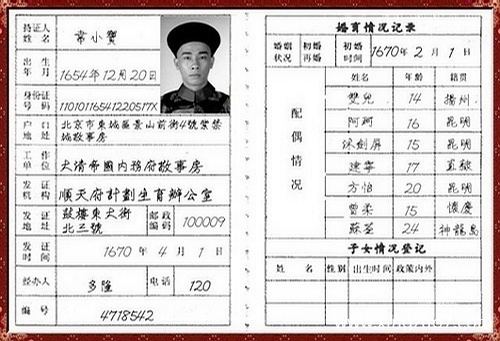 持证人
姓名
韦小宝
出生
年月
1654年12月20日
身份证
号码
11010116541220517X
户口
地址
北京市東城區景山前街4號紫禁
城敬事房
工作
单位
大清帝國內務府敬事房
发证
机构
順天府計劃生育辦公室
发证
地址
鼓樓東大街
北三號
邮政
编码
100009
发证
时间
1670年4月1日
经办人
多隆
电话
120
编号
4718542
婚育情况记录
婚姻
状况
初婚
再婚
初婚
时间
1670年2月1日
配偶情况
姓名 年龄 籍贯
雙兒 14 揚州
阿珂 16 昆明
沐劍屏 15 昆明
建寧 17 直隸
方怡 20 昆明
曾柔 15 懷慶
蘇荃 24 神龍島
子女情况登记
姓名 性别 出生时间 政策内外